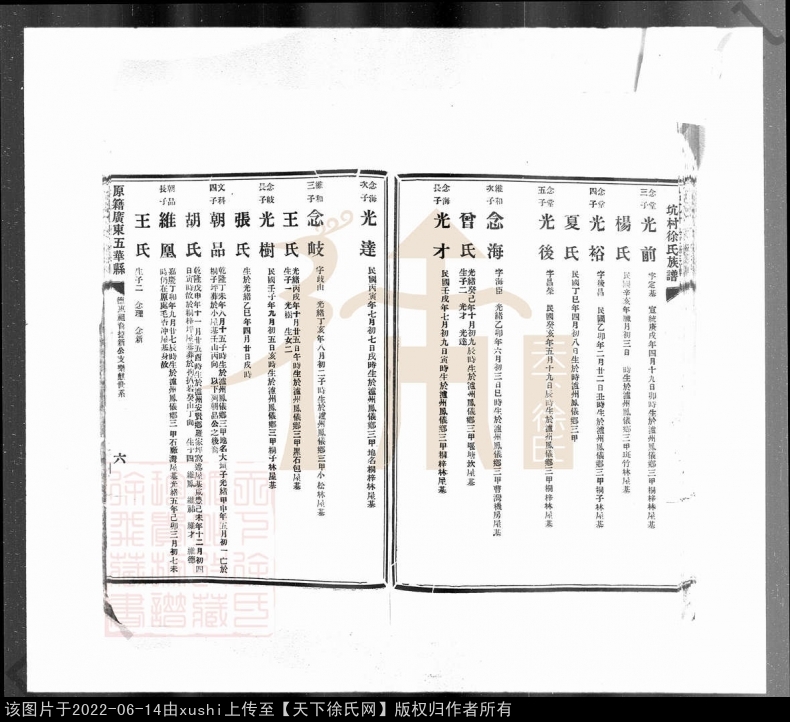 坑村徐氏族譜
念堂三子 光前 字定基 宣統庚戌年四月十九日卯時生於瀘州鳳儀鄉三甲桐梓林屋基
楊氏 民國辛亥年臘月初三日 時生於瀘州鳳儀鄉三甲斑竹林屋基
念堂四子 光裕 字後昌 民國乙卯年二月廿二日丑時生於瀘州鳳儀鄉三甲桐子林屋基
夏氏 民國丁巳年四月初八日生於瀘州鳳儀鄉三甲
念堂五子 光後 字昌榮 民國癸亥年五月十九日辰時生於瀘州鳳儀鄉三甲桐梓林屋基
維和次子 念海 字海臣 光緒乙卯年六月初三日巳時生於瀘州鳳儀鄉三甲曹灣機房屋基
曾氏 光緒癸巳年十月初九辰時生於瀘州鳳儀鄉三甲堰塘坎屋基
生子二 光才 光達
念海長子 光才 民國壬戌年七月初九日寅時生於瀘州鳳儀鄉三甲桐梓林屋基
念海次子 光達 民國丙寅年七月初七日戌時生於瀘州鳳儀鄉三甲地名桐梓林屋基
維和三子 念岐 字岐山 光緒丁亥年八月初二子時生於瀘州鳳儀鄉三甲小松林屋基
王氏 光緒丙戌年十月廿五日午時生於瀘州鳳儀鄉三甲黑石包屋基
生子一 光樹 生女二
念岐長子 光樹 民國壬子年九月初五日亥時生於瀘州鳳儀鄉三甲桐子林屋基
張氏 生於光緒乙巳年四月廿日戌時
文科四子 朝品 乾隆丁未年八月十五子時生於瀘州鳳儀鄉三甲地名大 子光緒甲申年五月初一亡於
桐子坪葬於小屋基壬山丙向 以下列朝品公之後裔
胡氏 乾隆戊申年十一月廿五酉時生於瀘州安賢鄉羅家坪窩 屋基咸豐己未年十二月初四
日寅時故於桐梓坪屋基葬於 扒岩癸山丁向 生子四 維鳳 維 維才 維德
朝品長子 維凰 嘉慶丁卯年九月廿七辰時生於瀘州鳳儀鄉三甲石廠灣屋基光緒五年己卯三月初七未
時仍在原處毛杏坪屋基身故
王氏 生子二 念理 念新
原籍廣東五華縣
六
该图片于2022-06-14由xushi上传至【天下徐氏网】版权归作者所有